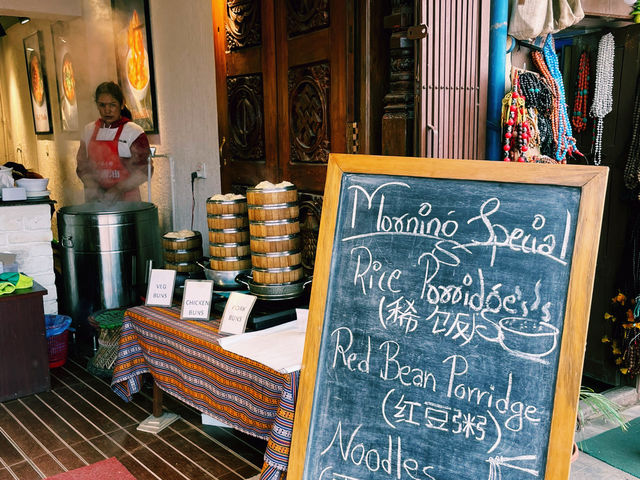 VEG
BUNS
CHICKEN
BUNS
PORK
BUNS
Morning Special
Rice Porridge
(稀饭)
Red Bean Porridge
(红豆粥)
Noodles